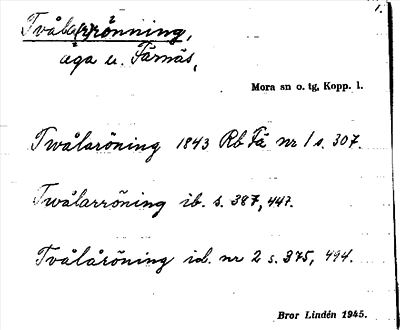 1.
Tvåla(r)rönning,
äga u. Färnäs,
Mora sn o. tg, Kopp. l.
Twålaröning 1843 Rb Fä nr 1 s. 307.
Twålarröning ib. s. 387, 447.
Tvålåröning id. nr 2 s. 375, 494.
Bror Lindén 1945.